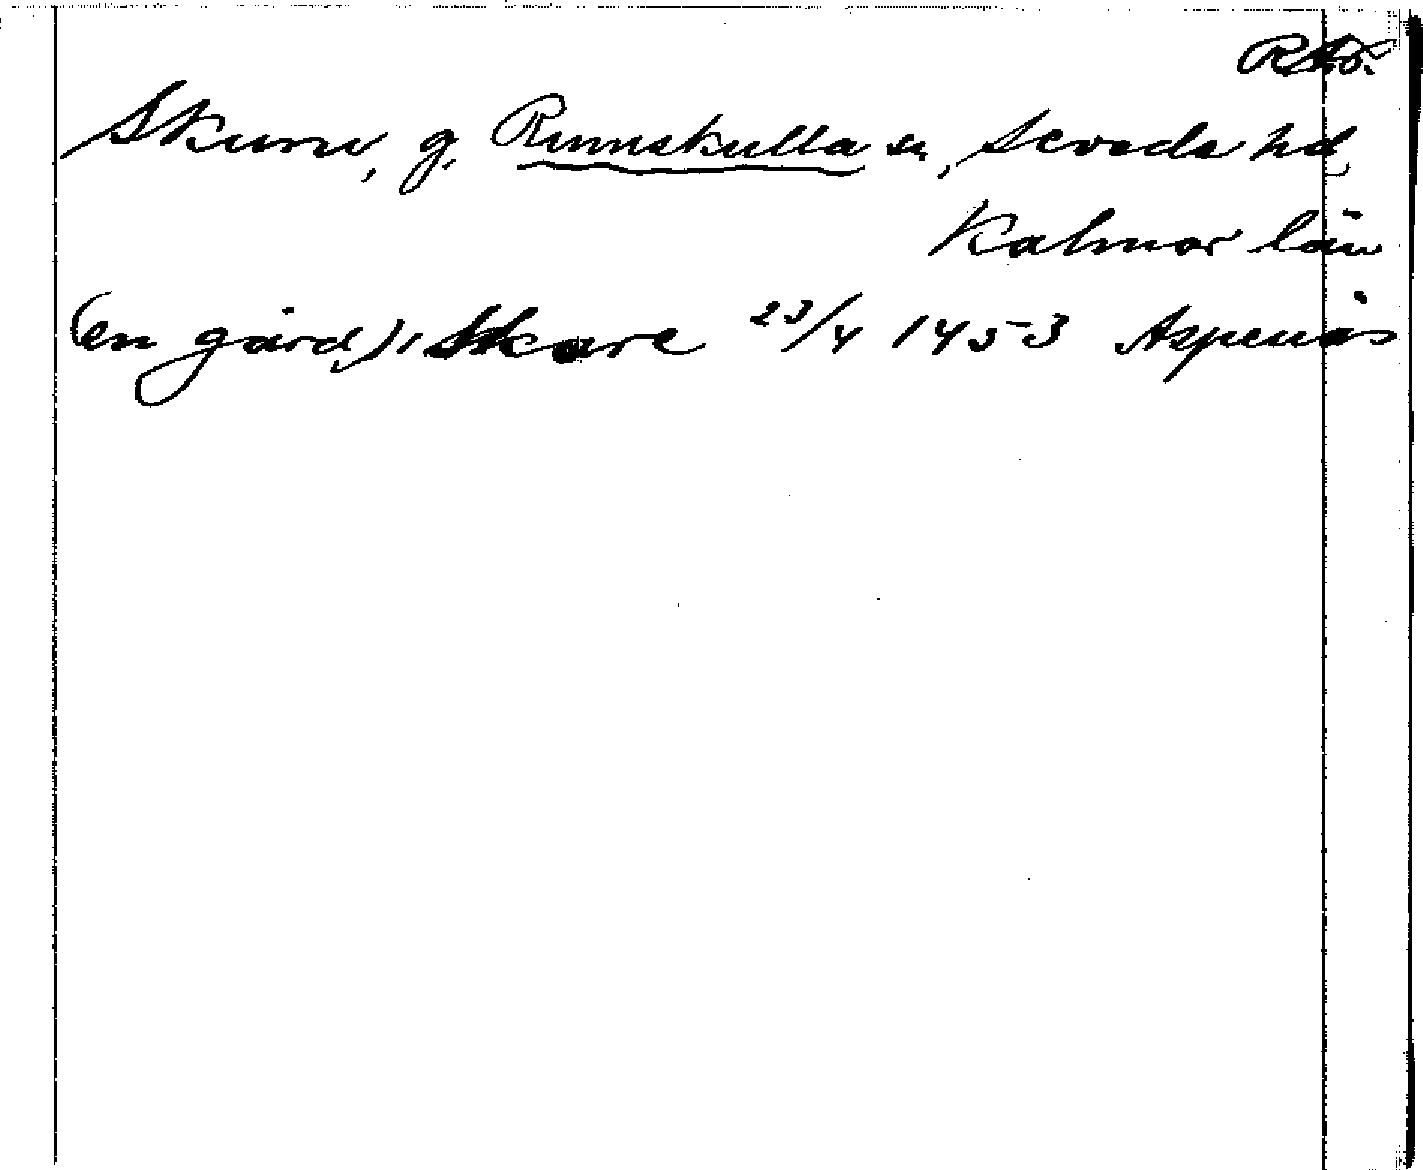 RAÖ.
Skuru, g, Rumskulla sn, Sevede hd,
Kalmar län
(en gård) i Skøre 23/4 1453 Aspenäs